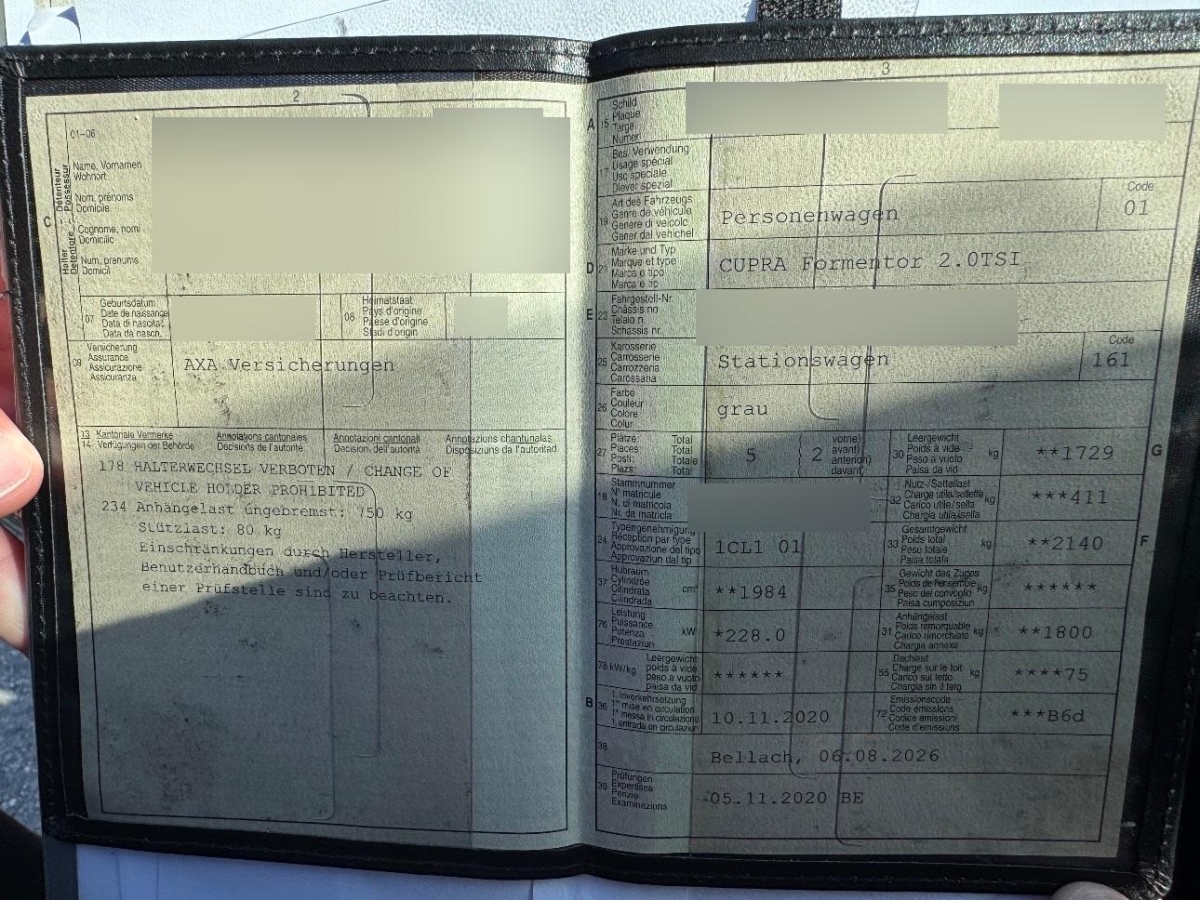 2
01-06
C
Halter
Détenteur
Detentore
Possessur
Name, Vornamen
Wohnort
Nom, prénoms
Domicile
Cognome, nomi
Domicilio
Num, prenums
Domicil
07
Geburtsdatum
Date de naissance
Data di nascita
Data da nasch.
08
Heimatstaat
Pays d'origine
Paese d'origine
Stadi d'origin
09
Versicherung
Assurance
Assicurazione
Assicuranza
AXA Versicherungen
13
14
Kantonale Vermerke
Verfügungen der Behörde
Annotations cantonales
Décisions de l'autorité
Annotazioni cantonali
Decisioni dell'autorità
Annotaziuns chantunalas
Disposiziuns da l'autoritad
178 HALTERWECHSEL VERBOTEN / CHANGE OF
VEHICLE HOLDER PROHIBITED
234 Anhängelast ungebremst: 750 kg
Stützlast: 80 kg
Einschränkungen durch Hersteller,
Benutzerhandbuch und/oder Prüfbericht
einer Prüfstelle sind zu beachten.
3
A
15
Schild
Plaque
Targa
Numer
17
Bes. Verwendung
Usage spécial
Uso speciale
Diever spezial
19
Art des Fahrzeugs
Genre de véhicule
Genere di veicolo
Gener dal vehichel
Personenwagen
Code
01
D
21
Marke und Typ
Marque et type
Marca e tipo
Marca e tip
CUPRA Formentor 2.0TSI
E
23
Fahrgestell-Nr.
Châssis no
Telaio n.
Schassis nr.
25
Karosserie
Carrosserie
Carrozzeria
Carossaria
Stationswagen
Code
161
26
Farbe
Couleur
Colore
Colur
grau
27
Plätze Total
Places: Total
Posti: Totale
Plazs: Total
5
2
vorne)
avant)
anteriori)
davant)
30
Leergewicht
Poids à vide
Peso a vuoto
Paisa da vid
kg
**1729
G
18
Stammnummer
N° matricule
N. di matricola
Nr. da matricla
32
Nutz-/Sattellast
Charge utile/sellette
Carico utile/sella
Chargia utila/sella
kg
***411
24
Typengenehmigung
Réception par type
Approvazione del tipo
Approvaziun dal tip
1CL1 01
33
Gesamtgewicht
Poids total
Peso totale
Paisa totala
kg
**2140
F
37
Hubraum
Cylindrée
Cilindrata
Cilindrada
cm³
**1984
35
Gewicht des Zuges
Poids de l'ensemble
Peso del convoglio
Paisa cumposiziun
kg
******
76
Leistung
Puissance
Potenza
Prestaziun
kW
*228.0
31
Anhängelast
Poids remorquable
Carico rimorchiato
Chargia annexa
kg
**1800
78 kW/kg
Leergewicht
poids à vide
peso a vuoto
paisa da vid
******
55
Dachlast
Charge sur le toit
Carico sul tetto
Chargia sin il tetg
kg
****75
B
36
1. Inverkehrsetzung
1re mise en circulation
1a messa in circolazione
1. entrada en circulaziun
10.11.2020
72
Emissionscode
Code émissions
Codice emissioni
Code d'emissiuns
***B6d
38
Bellach, 06.08.2026
39
Prüfungen
Expertises
Perizie
Examinaziuns
05.11.2020 BE